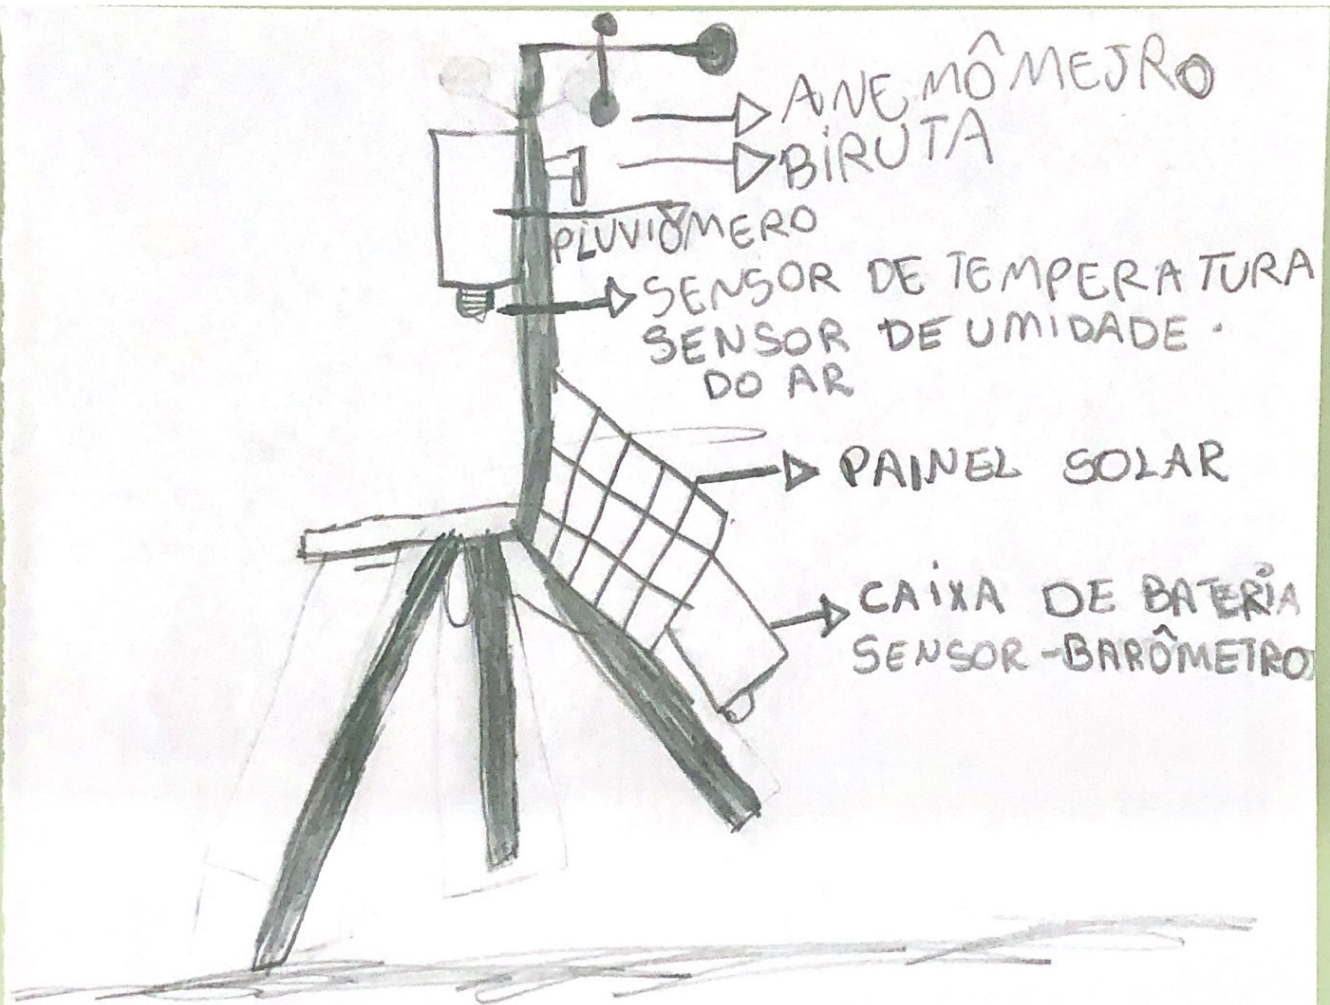 ANEMÔMEJRO
BIRUTA
PLUVIÔMERO
SENSOR DE TEMPERATURA
SENSOR DE UMIDADE.
DO AR
PAINEL SOLAR
CAIXA DE BATERIA
SENSOR-BARÔMETRO